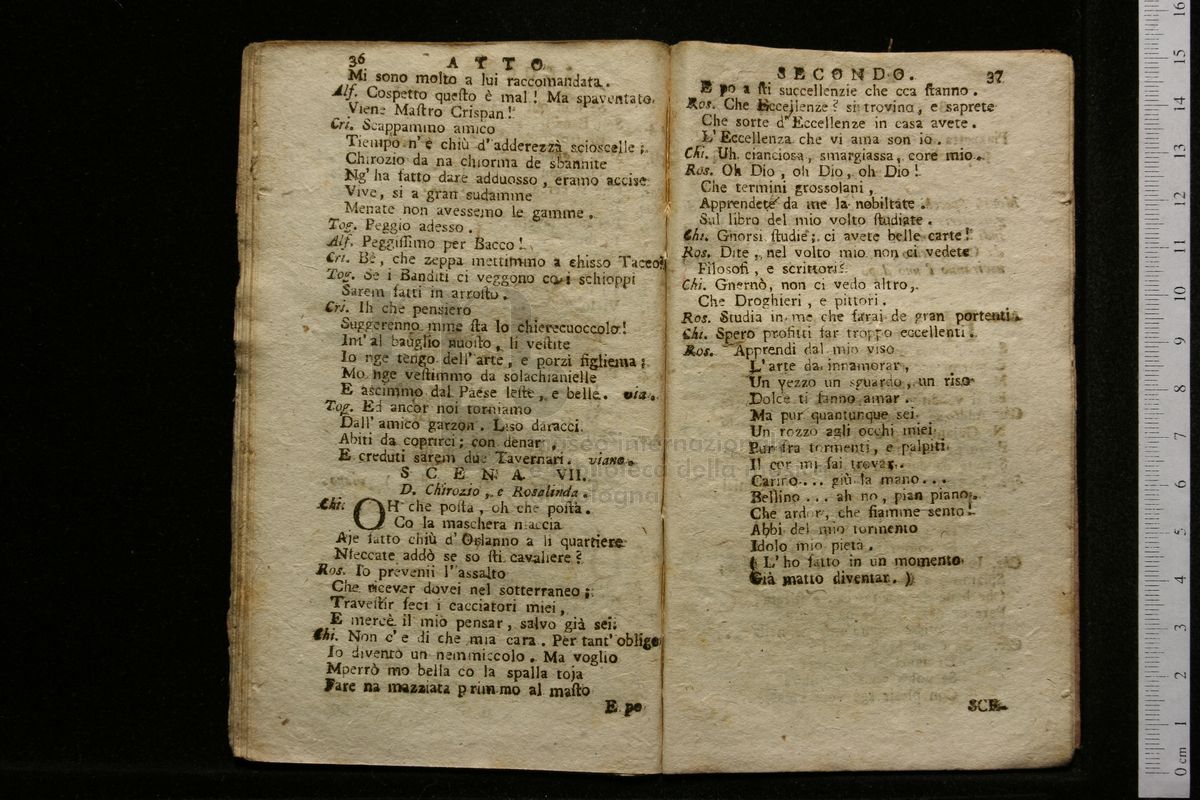 36 ATTO
Mi sono molto a lui raccomandata.
Alf. Cospetto questo è mal! Ma spaventato
Viene Mastro Crispan!
Cri. Scappammo amico
Tiempo n'è chiù d'adderezzà scioscelle;
Chirozio da na chiorma de sbannite
Ng'ha fatto dare adduosso, eramo accise
Vive, si a gran sudamme
Menate non avessemo le gamme.
Tog. Peggio adesso.
Alf. Peggissimo per Bacco!
Cri. Bè, che zeppa mettimmo a chisso Tacco?
Tog. Se i Banditi ci veggono co i schioppi
Sarem fatti in arrosto.
Cri. Ih che pensiero
Suggerenno mme sta lo chierecuoccolo!
Int'al bauglio nuosto, li vestite
Io nge tengo dell'arte, e porzi figliema;
Mo nge vestimmo da solachianielle
E ascimmo dal Paese leste, e belle. via.
Tog. Ed ancor noi torniamo
Dall'amico garzon. Liso daracci
Abiti da coprirci; con denar,
E creduti sarem due Tavernari. viano.
SCENA VII.
D. Chirozio, e Rosalinda.
Chi. OH che posta, oh che posta.
Co la maschera nfaccia
Aje fatto chiù d'Orlanno a li quartiere
Nfeccate addò se so sti cavaliere?
Ros. Io prevenii l'assalto
Che ricever dovei nel sotterraneo;
Travestir feci i cacciatori miei,
E mercè il mio pensar, salvo già sei.
Chi. Non c'e di che mia cara. Per tant'obligo
Io divento un nemmiccolo. Ma voglio
Mperrò mo bella co la spalla toja
Fare na mazziata primmo al masto
E po
SECONDO. 37
E po a sti succellenzie che cca stanno.
Ros. Che Eccellenze? si trovino, e saprete
Che sorte d'Eccellenze in casa avete.
L'Eccellenza che vi ama son io.
Chi. Uh cianciosa, smargiassa, core mio.
Ros. Oh Dio, oh Dio, oh Dio!
Che termini grossolani,
Apprendete da me la nobiltate.
Sul libro del mio volto studiate.
Chi. Gnorsì studie; ci avete belle carte!
Ros. Dite, nel volto mio non ci vedete
Filosofi, e scrittori?
Chi. Gnernò, non ci vedo altro,
Che Droghieri, e pittori.
Ros. Studia in me che farai de gran portenti.
Chi. Spero profitti far troppo eccellenti.
Ros. Apprendi dal mio viso
L'arte da innamorar,
Un vezzo un sguardo, un riso
Dolce ti fanno amar.
Ma pur quantunque sei
Un rozzo agli occhi miei
Pur fra tormenti, e palpiti
Il cor mi fai trovar.
Carino... giù la mano...
Bellino... ah no, pian piano,
Che ardor, che fiamme sento!
Abbi del mio tormento
Idolo mio pietà.
(L'ho fatto in un momento
Già matto diventar.)
SCE-